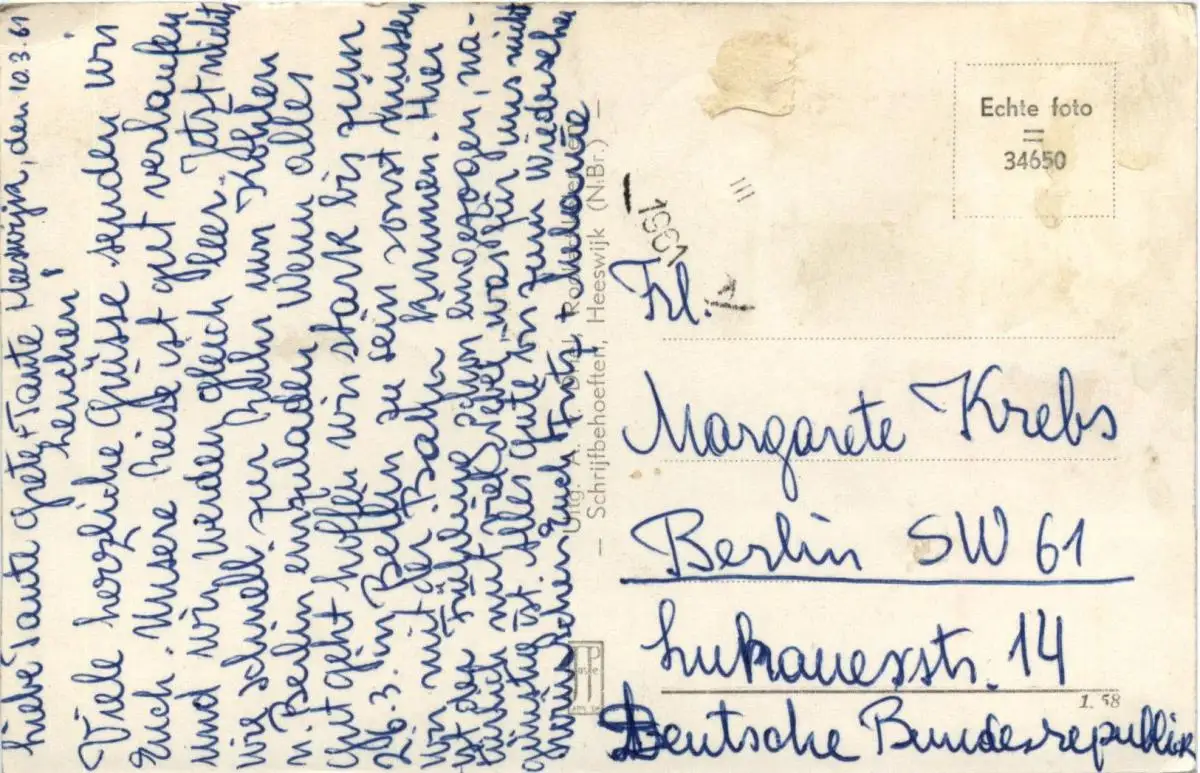 Heeswijk, den 10.3.61
Liebe Tante Grete + Tante
Lenchen!
Viele herzliche Grüsse senden wir
Euch. Unsere Reise ist gut verlaufen
und wir werden gleich leer. Jetzt nichts
wie schnell zur Ruhr um Kohlen
n. Berlin einzuladen. Wenn alles
gut geht hoffen wir stark bis zum
26.3. in Berlin zu sein sonst müssen
wir mit der Bahn kommen. Hier
ist der Frühling schon eingezogen, na-
türlich mit viel Regen, was für uns nicht
günstig ist. Alles Gute b. zum Wiedersehen
wünschen Euch Fritz +
Uitg. A. v.
Schrijfbehoeften, Heeswijk (N.Br.)
Echte foto
34650
1961
Frl.
Margarete Krebs
Berlin SW 61
Lukauerstr. 14
1.58
Deutsche Bundesrepublik